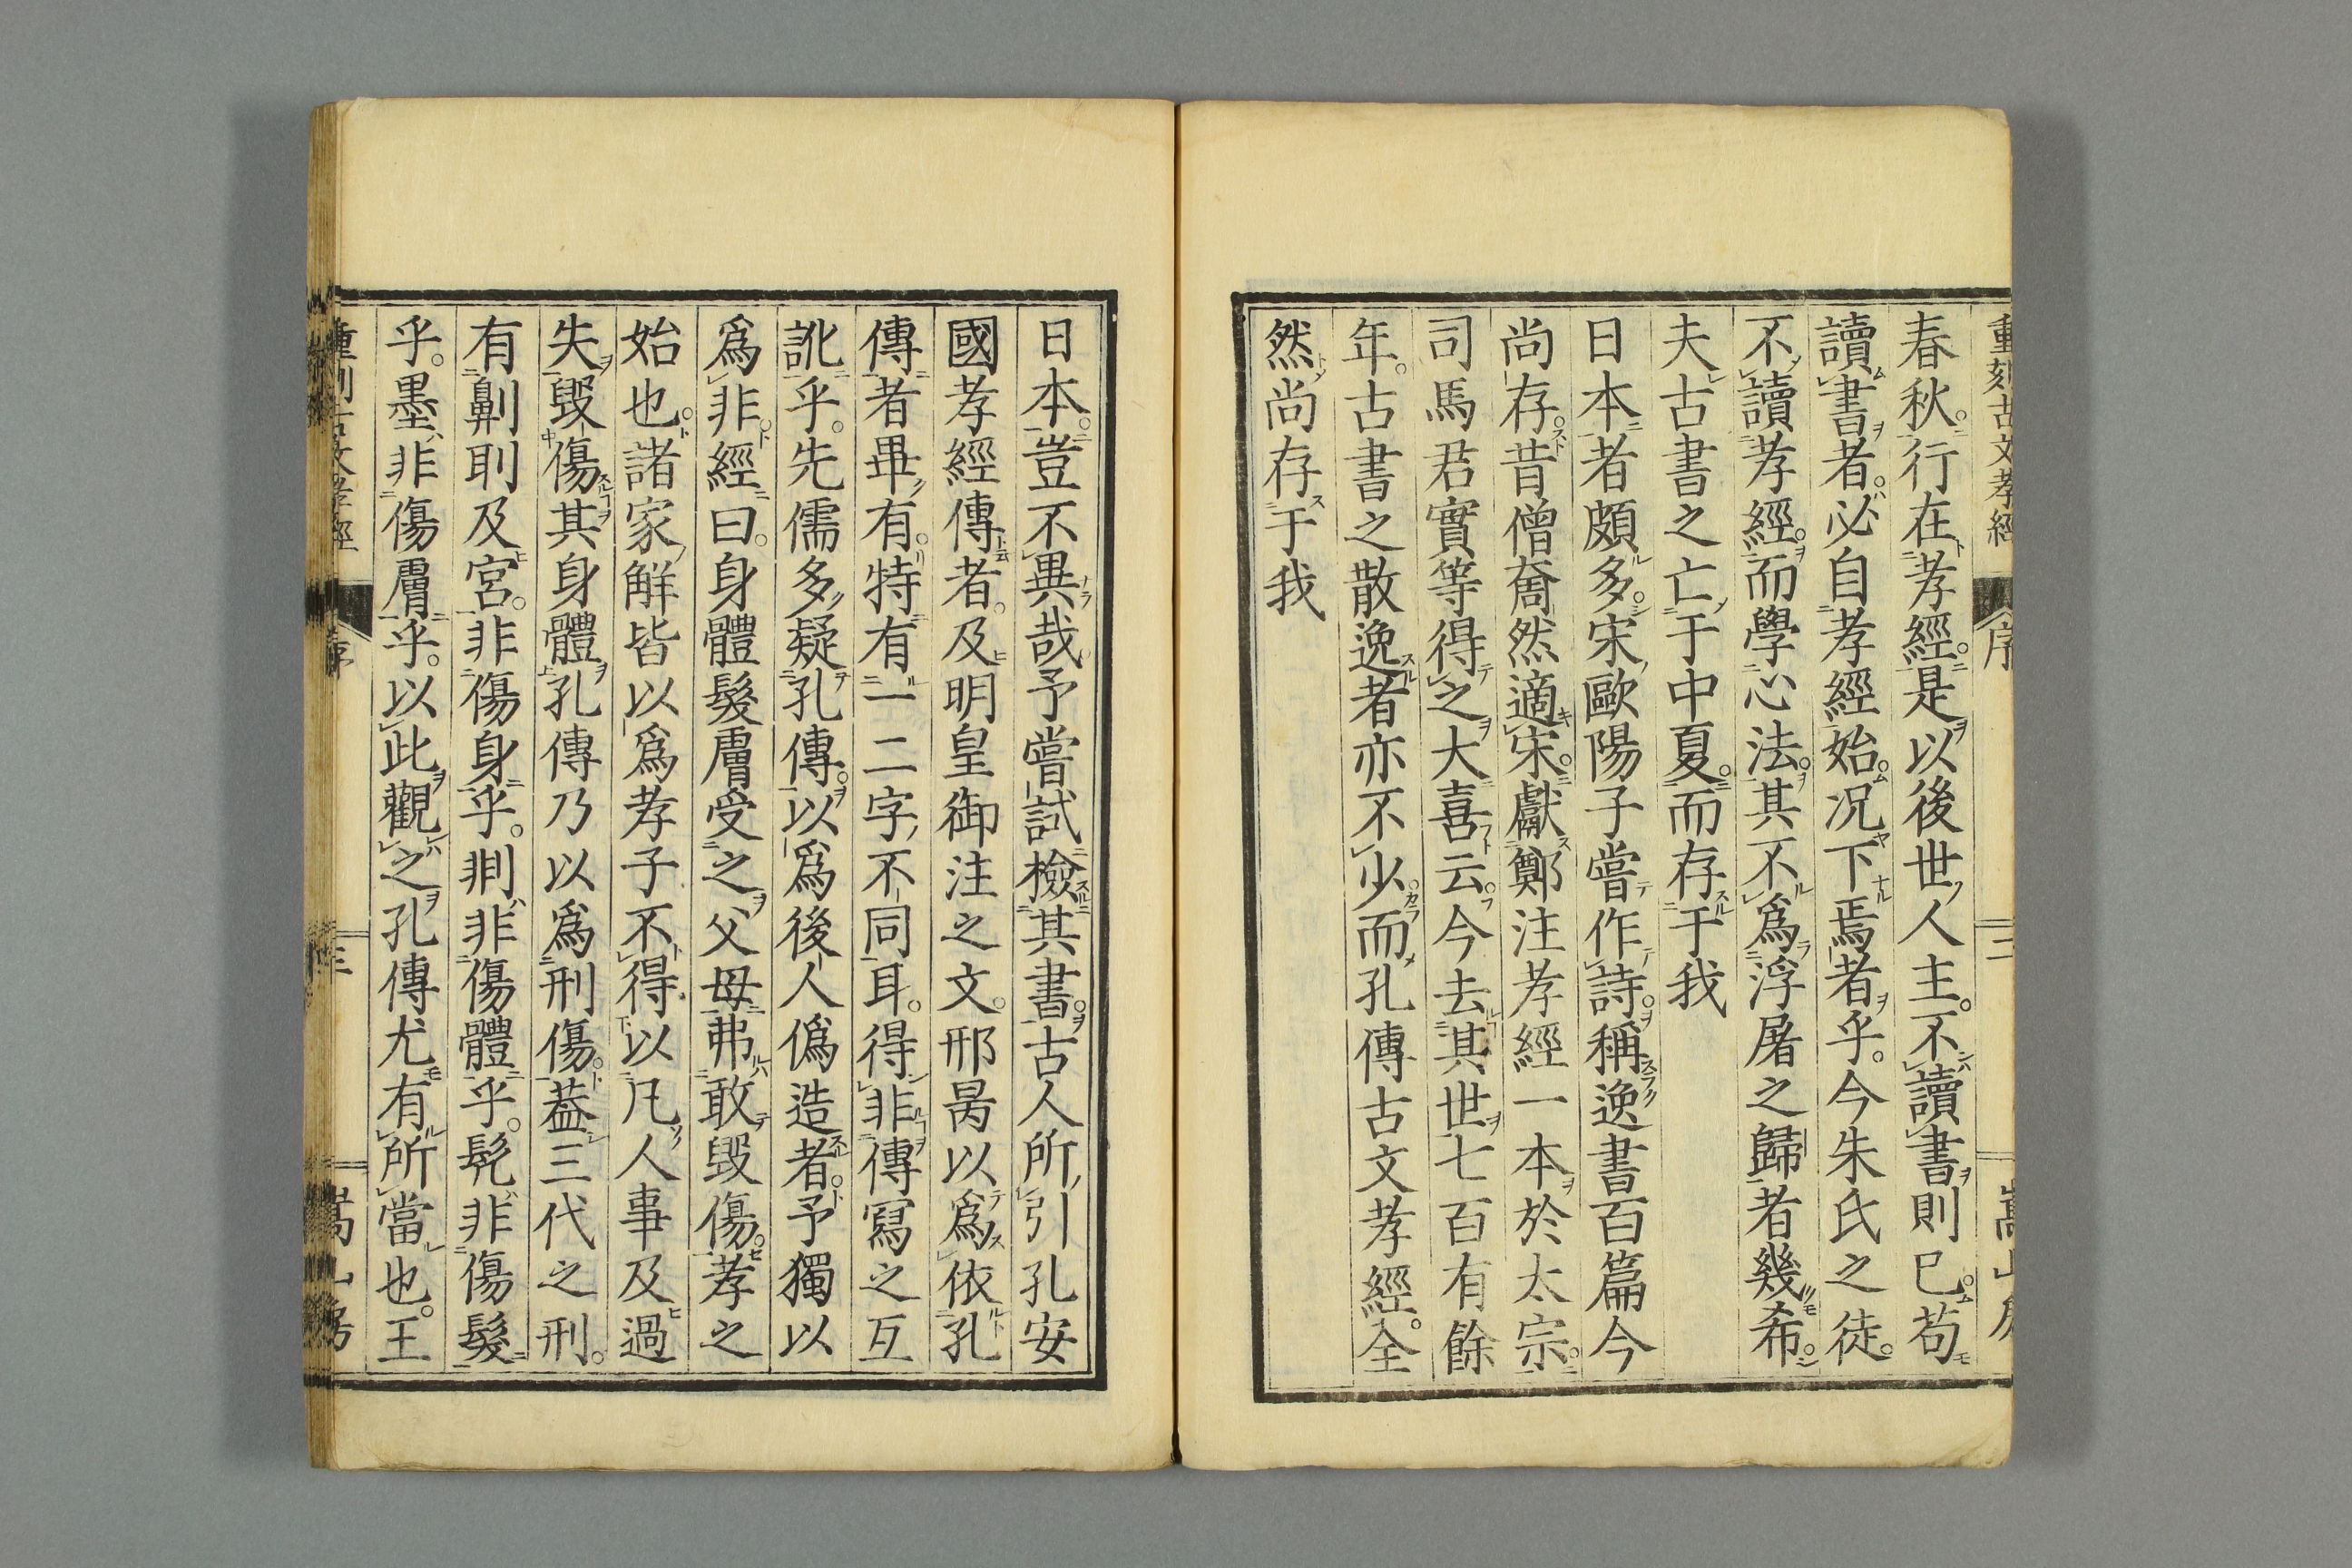 重刻古文孝經 序 二 嵩山房
春秋。行在孝經。是以後世人主。不讀書則已。苟
讀書者。必自孝經始。况下焉者乎。今朱氏之徒。
不讀孝經。而學心法。其不爲浮屠之歸者幾希。
夫古書之亡于中夏。而存于我
日本者頗多。宋歐陽子嘗作詩。稱逸書百篇今
尚存。昔僧奝然適宋。獻鄭注孝經一本於太宗。
司馬君實等得之大喜云。今去其世七百有餘
年。古書之散逸者亦不少。而孔傳古文孝經。全
然尚存于我
日本。豈不異哉予嘗試檢其書。古人所引孔安
國孝經傳者。及明皇御注之文。邢昺以爲依孔
傳者畢有。特有一二字不同耳。得非傳寫之互
訛乎。先儒多疑孔傳。以爲後人僞造者。予獨以
爲非。經曰。身體髮膚受之父母弗敢毀傷。孝之
始也。諸家解皆以爲孝子不得以凡人事及過
失毀傷其身體孔傳乃以爲刑傷。蓋三代之刑。
有劓刵及宮。非傷身乎。剕非傷體乎。髡非傷髮
乎。墨非傷膚乎。以此觀之孔傳尤有所當也。王
重刻古文孝經 序 三 嵩山房